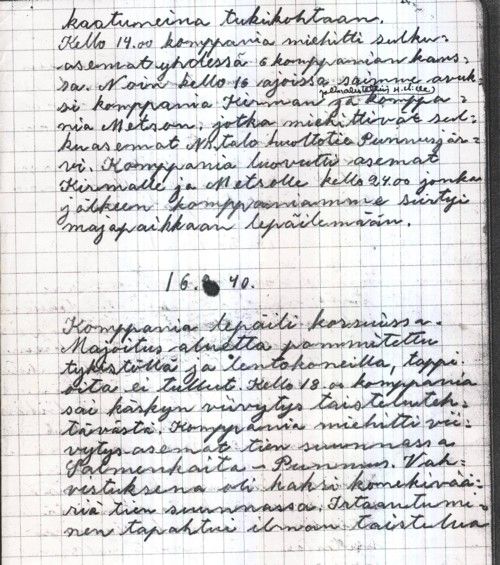 kaatumeina tukikohtaan.
Kello 14.00 komppania miehitti sulku=
asemat yhdessä 6 komppanian kans=
sa. Noin kello 16 ajoissa saimme avuk=
si komppania Kirman ja komppa=
nia Metson, jotka miehittivät sul=
kuasemat talo huoltotie Punnusjär=
vi. Komppania luovutti asemat
Kirmalle ja Metsolle kello 24.00 jonka
jälkeen komppaniamme siirtyi
majapaikkaan lepäilemään.
16. 40.
Komppania lepäili korsuissa.
Majoitus aluetta pommitettu
tykistöllä ja lentokoneilla, tappi=
oita ei tullut. Kello 18.00 komppania
sai käskyn viivytys taisteluteh=
tävästä. Komppania miehitti vii=
vytysasemat tien suunnassa
Salmenkaita - Punnus. Vah=
vistuksena oli kaksi konekivää=
riä tien suunnassa. Irtaantumi=
nen tapahtui ilman taistelua